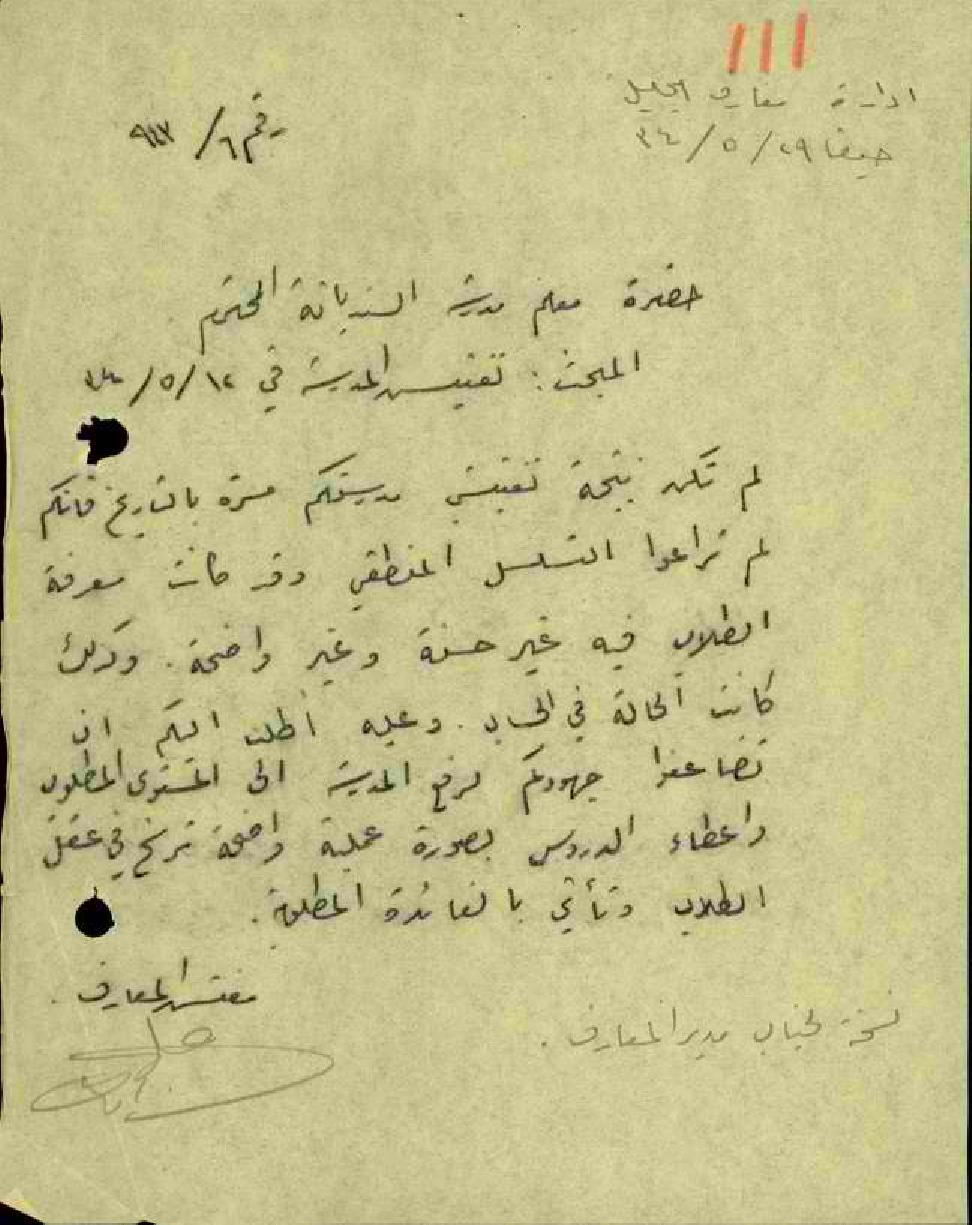 111
ادارة معارف الجليل
حيفا ٢٩/٥/٣٤
رقم ٦/٩٤٣
حضرة معلم مدرسة السنديانة المحترم
المبحث: تفتيش المدرسة في ١٢/٥/٣٤
لم تكن نتيجة تفتيش مدرستكم مسرة بالتاريخ فانكم
لم تراعوا التسلسل المنطقي وقد كانت معرفة
الطلاب فيه غير حسنة وغير واضحة. وكذلك
كانت الحالة في الحساب. وعليه اطلب اليكم ان
تضاعفوا جهودكم لرفع المدرسة الى المستوى المطلوب
واعطاء الدروس بصورة عملية واضحة ترسخ في عقل
الطلاب وتأتي بالفائدة المطلوبة.
مفتش المعارف.
نسخة لجناب مدير المعارف.